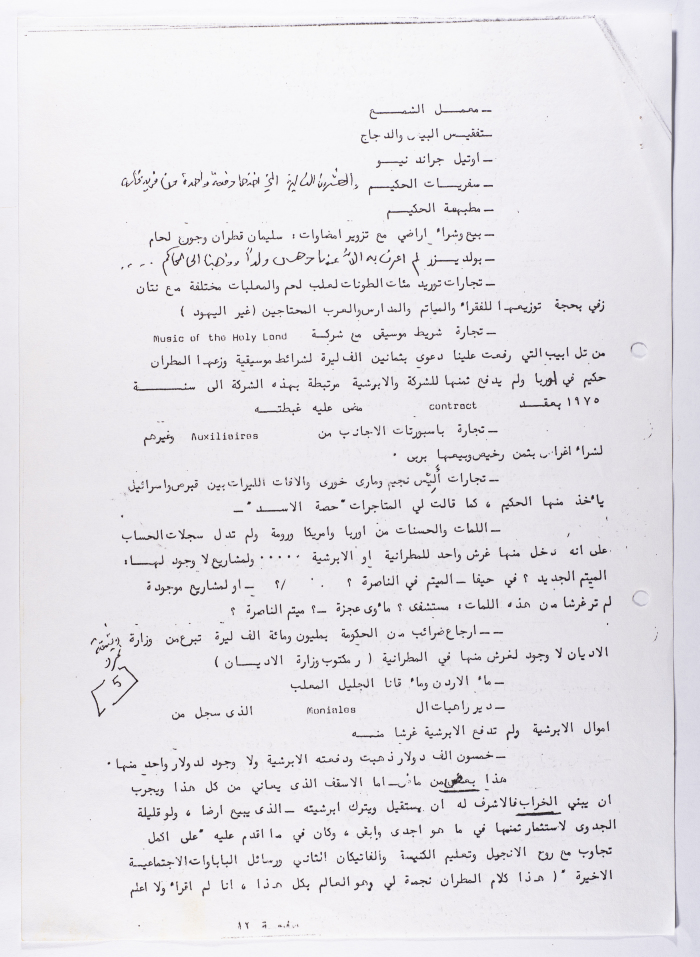 ـ معمل الشمع
ـ تفقيس البيض والدجاج
ـ اوتيل جراند نيو
ـ سفريات الحكيم
ـ مطبعة الحكيم
ـ بيع وشراء اراضي مع تزوير امضاوات : سليمان قطران وجون لحام
ـ بولديزر لم اعرف به
ـ تجارات توريد مئات الطونات لعلب لحم والمعلبات مختلفة مع نتان
زفي بحجة توزيعها للفقراء والمياتم والمدارس والعرب المحتاجين (غير اليهود )
ـ تجارة شريط موسيقى مع شركة Music of the Holy Land
من تل ابيب التي رفعت علينا دعوي بثمانين الف ليرة لشرائط موسيقية وزعها المطران
حكيم في اوربا ولم يدفع ثمنها للشركة والابرشية مرتبطة بهذه الشركة الى سنة
١٩٧٥ بعقد contract مضى عليه غبطته
ـ تجارة باسبورتات الاجانب من Auxiliaires وغيرهم
لشراء اغراض بثمن رخيص وبيعها بربى ٠
ـ تجارات أليس نجيم ومارى خورى والافات الليرات بين قبرص واسرائيل
يأخذ منها الحكيم ، كما قالت لي المتاجرات "حصة الاسد" ـ
ـ اللمات والحسنات من اوربا وامريكا ورومة ولم تدل سجلات الحساب
على انه دخل منها غرش واحد للمطرانية او الابرشية ٠٠٠٠٠ ولمشاريع لا وجود لها :
الميتم الجديد ؟ في حيفا ـ الميتم في الناصرة ؟ /؟ ـ او لمشاريع موجودة
لم تر غرشا من هذه اللمات : مستشفى ؟ مأوى عجزة ـ؟ ميتم الناصرة ؟
ـ ـ ارجاع ضرائب من الحكومة بمليون ومائة الف ليرة تبرع من وزارة
الاديان لا وجود لغرش منها في المطرانية ( ر مكتوب وزارة الاديان )
5
ـ ماء الاردن وماء قانا الجليل المعلب
ـ دير راهبات ال Moniales الذى سجل من
اموال الابرشية ولم تدفع الابرشية غرشا منه
ـ خمسون الف دولار ذهبت ودفعته الابرشية ولا وجود لدولار واحد منها ٠
هذا بعض من ماض ـ اما الاسقف الذى يعاني من كل هذا ويجرب
ان يبني الخراب فالاشرف له ان يستقيل ويترك ابرشيته ـ الذى يبيع ارضا ، ولو قليلة
الجدوى لاستثمار ثمنها في ما هو اجدى وابقى ، وكان في ما اقدم عليه "على اكمل
تجاوب مع روح الانجيل وتعليم الكنيسة والفاتيكان الثاني ورسائل الباباوات الاجتماعية
الاخيرة "( هذا كلام المطران نجمة لي وهو العالم بكل هذا ، انا لم اقراء ولا اعلم
صفحة ١٢